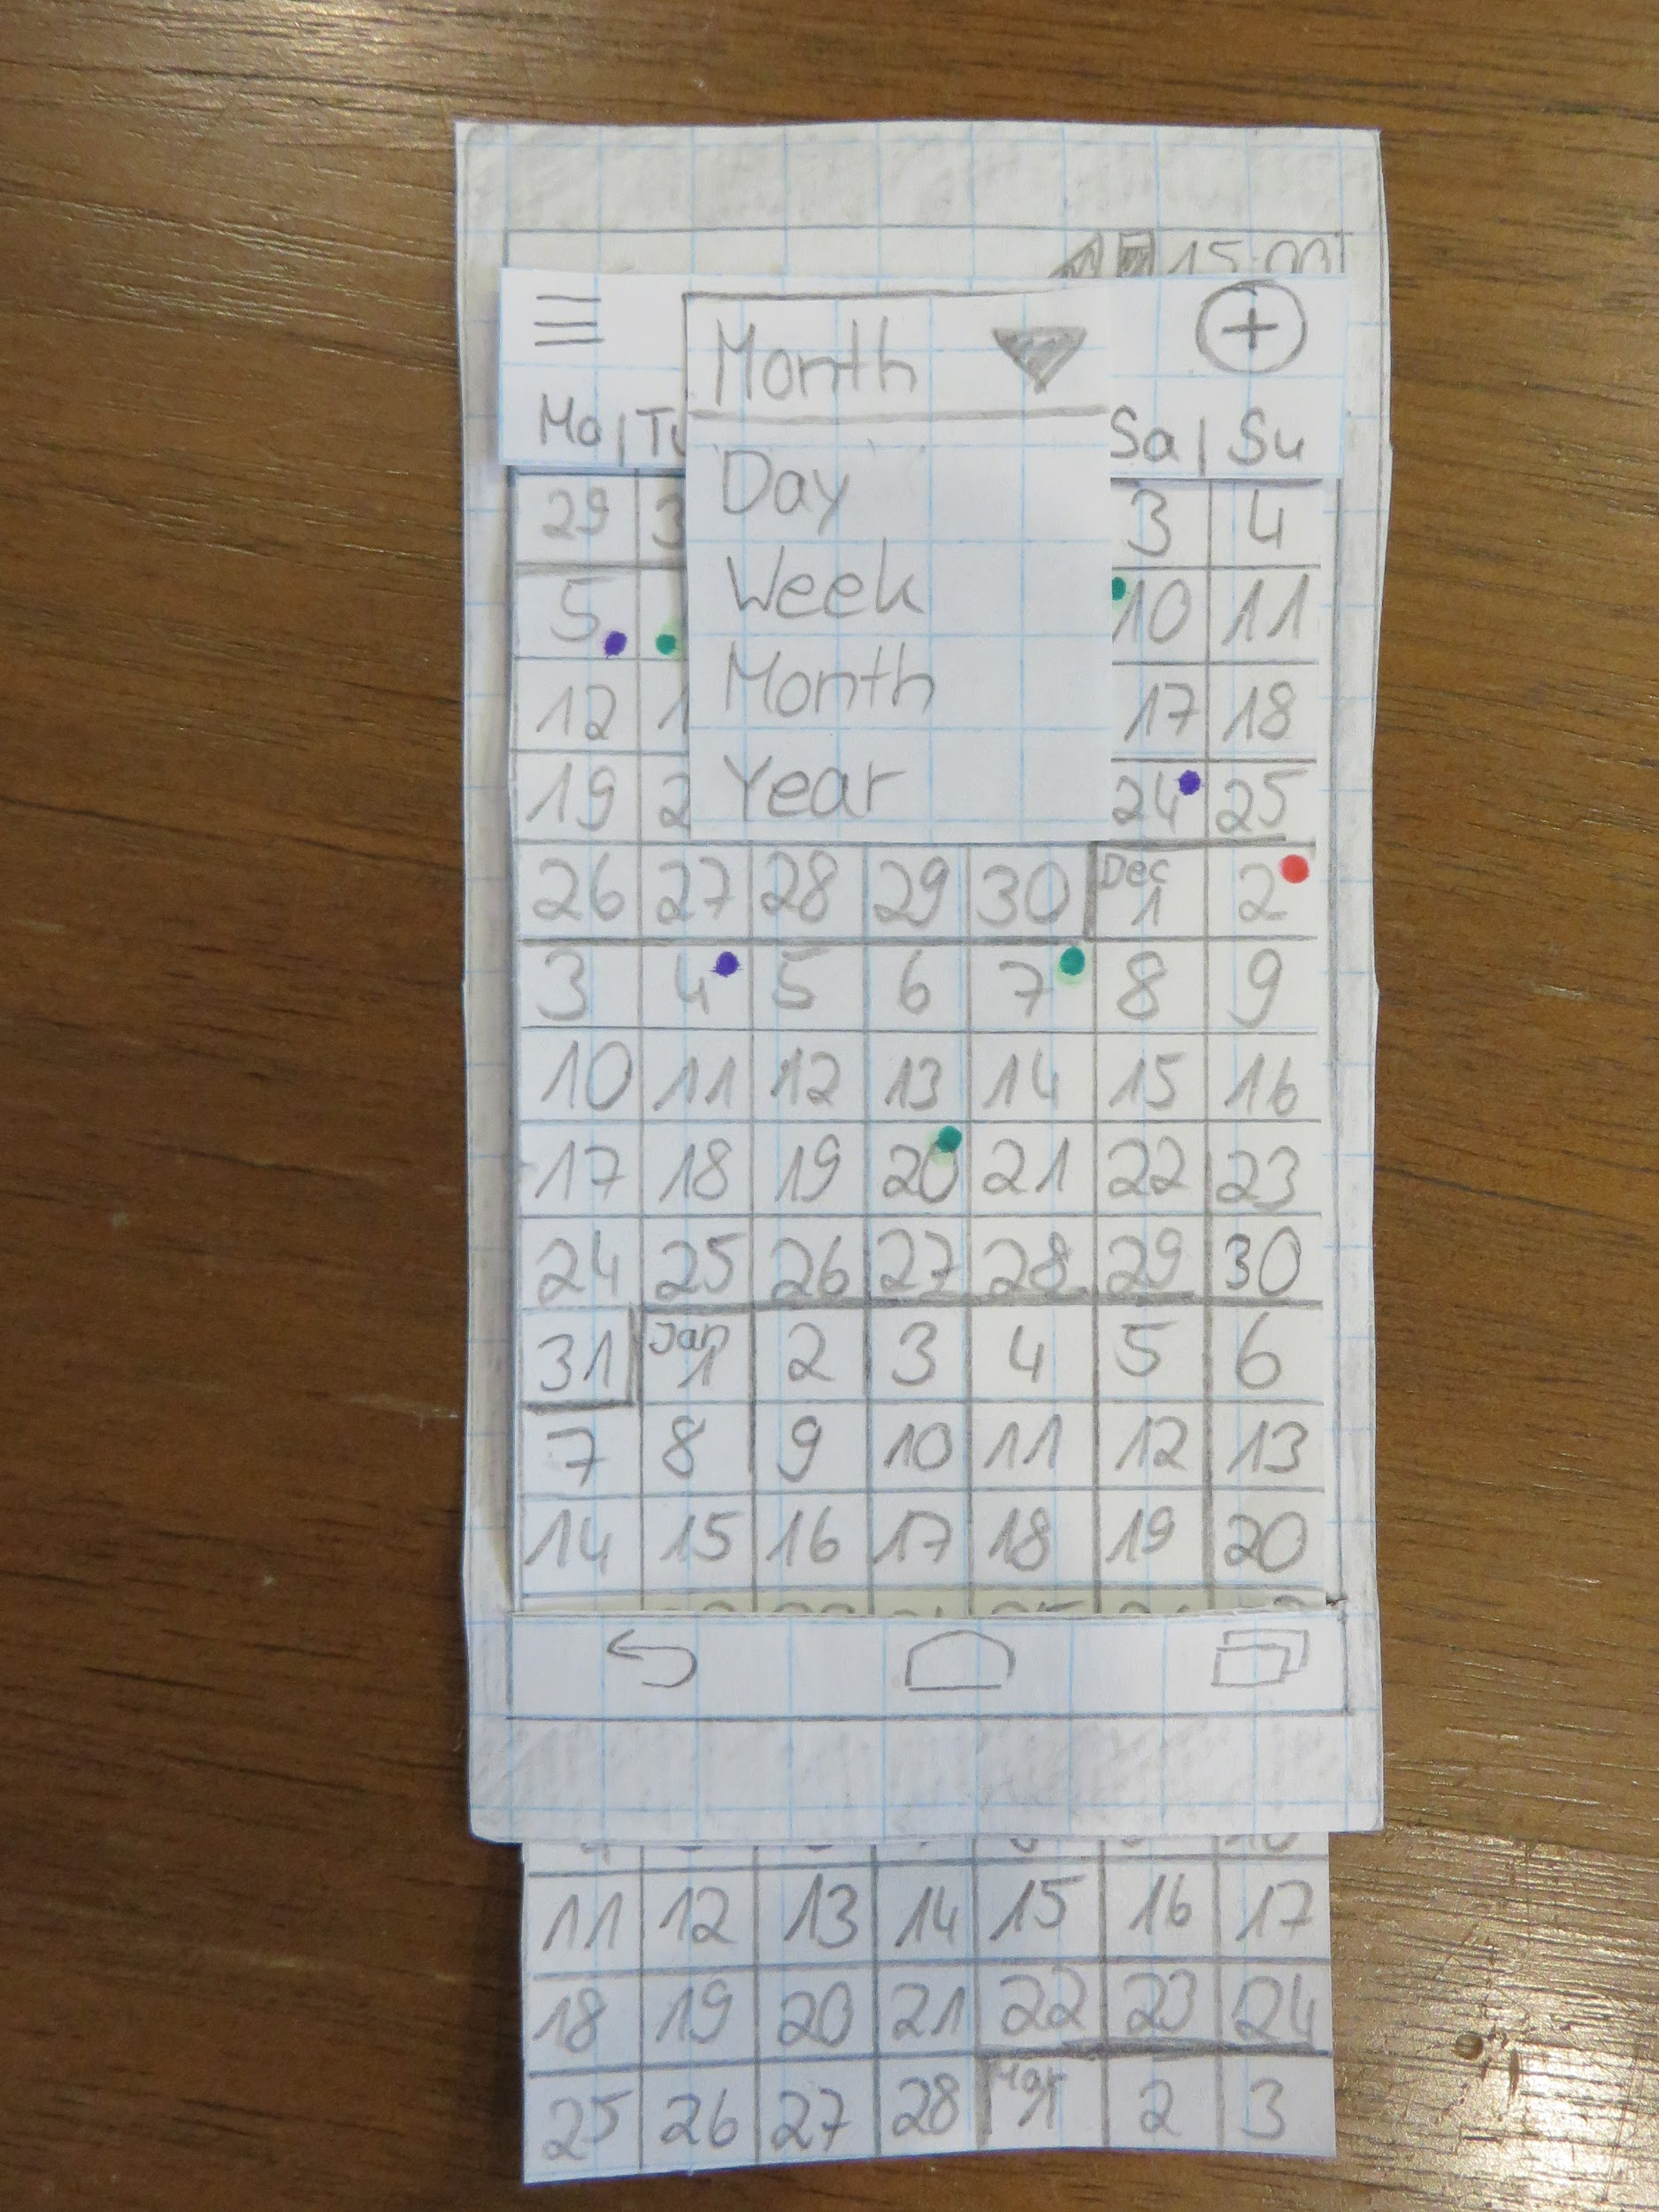 15:00
Month
Mo | Tu
Sa | Su
Day
Week
Month
Year
29 3 3 4
5 10 11
12 1 17 18
19 2 24 25
26 27 28 29 30 Dec 1 2
3 4 5 6 7 8 9
10 11 12 13 14 15 16
17 18 19 20 21 22 23
24 25 26 27 28 29 30
31 Jan 1 2 3 4 5 6
7 8 9 10 11 12 13
14 15 16 17 18 19 20
11 12 13 14 15 16 17
18 19 20 21 22 23 24
25 26 27 28 Mar 1 2 3